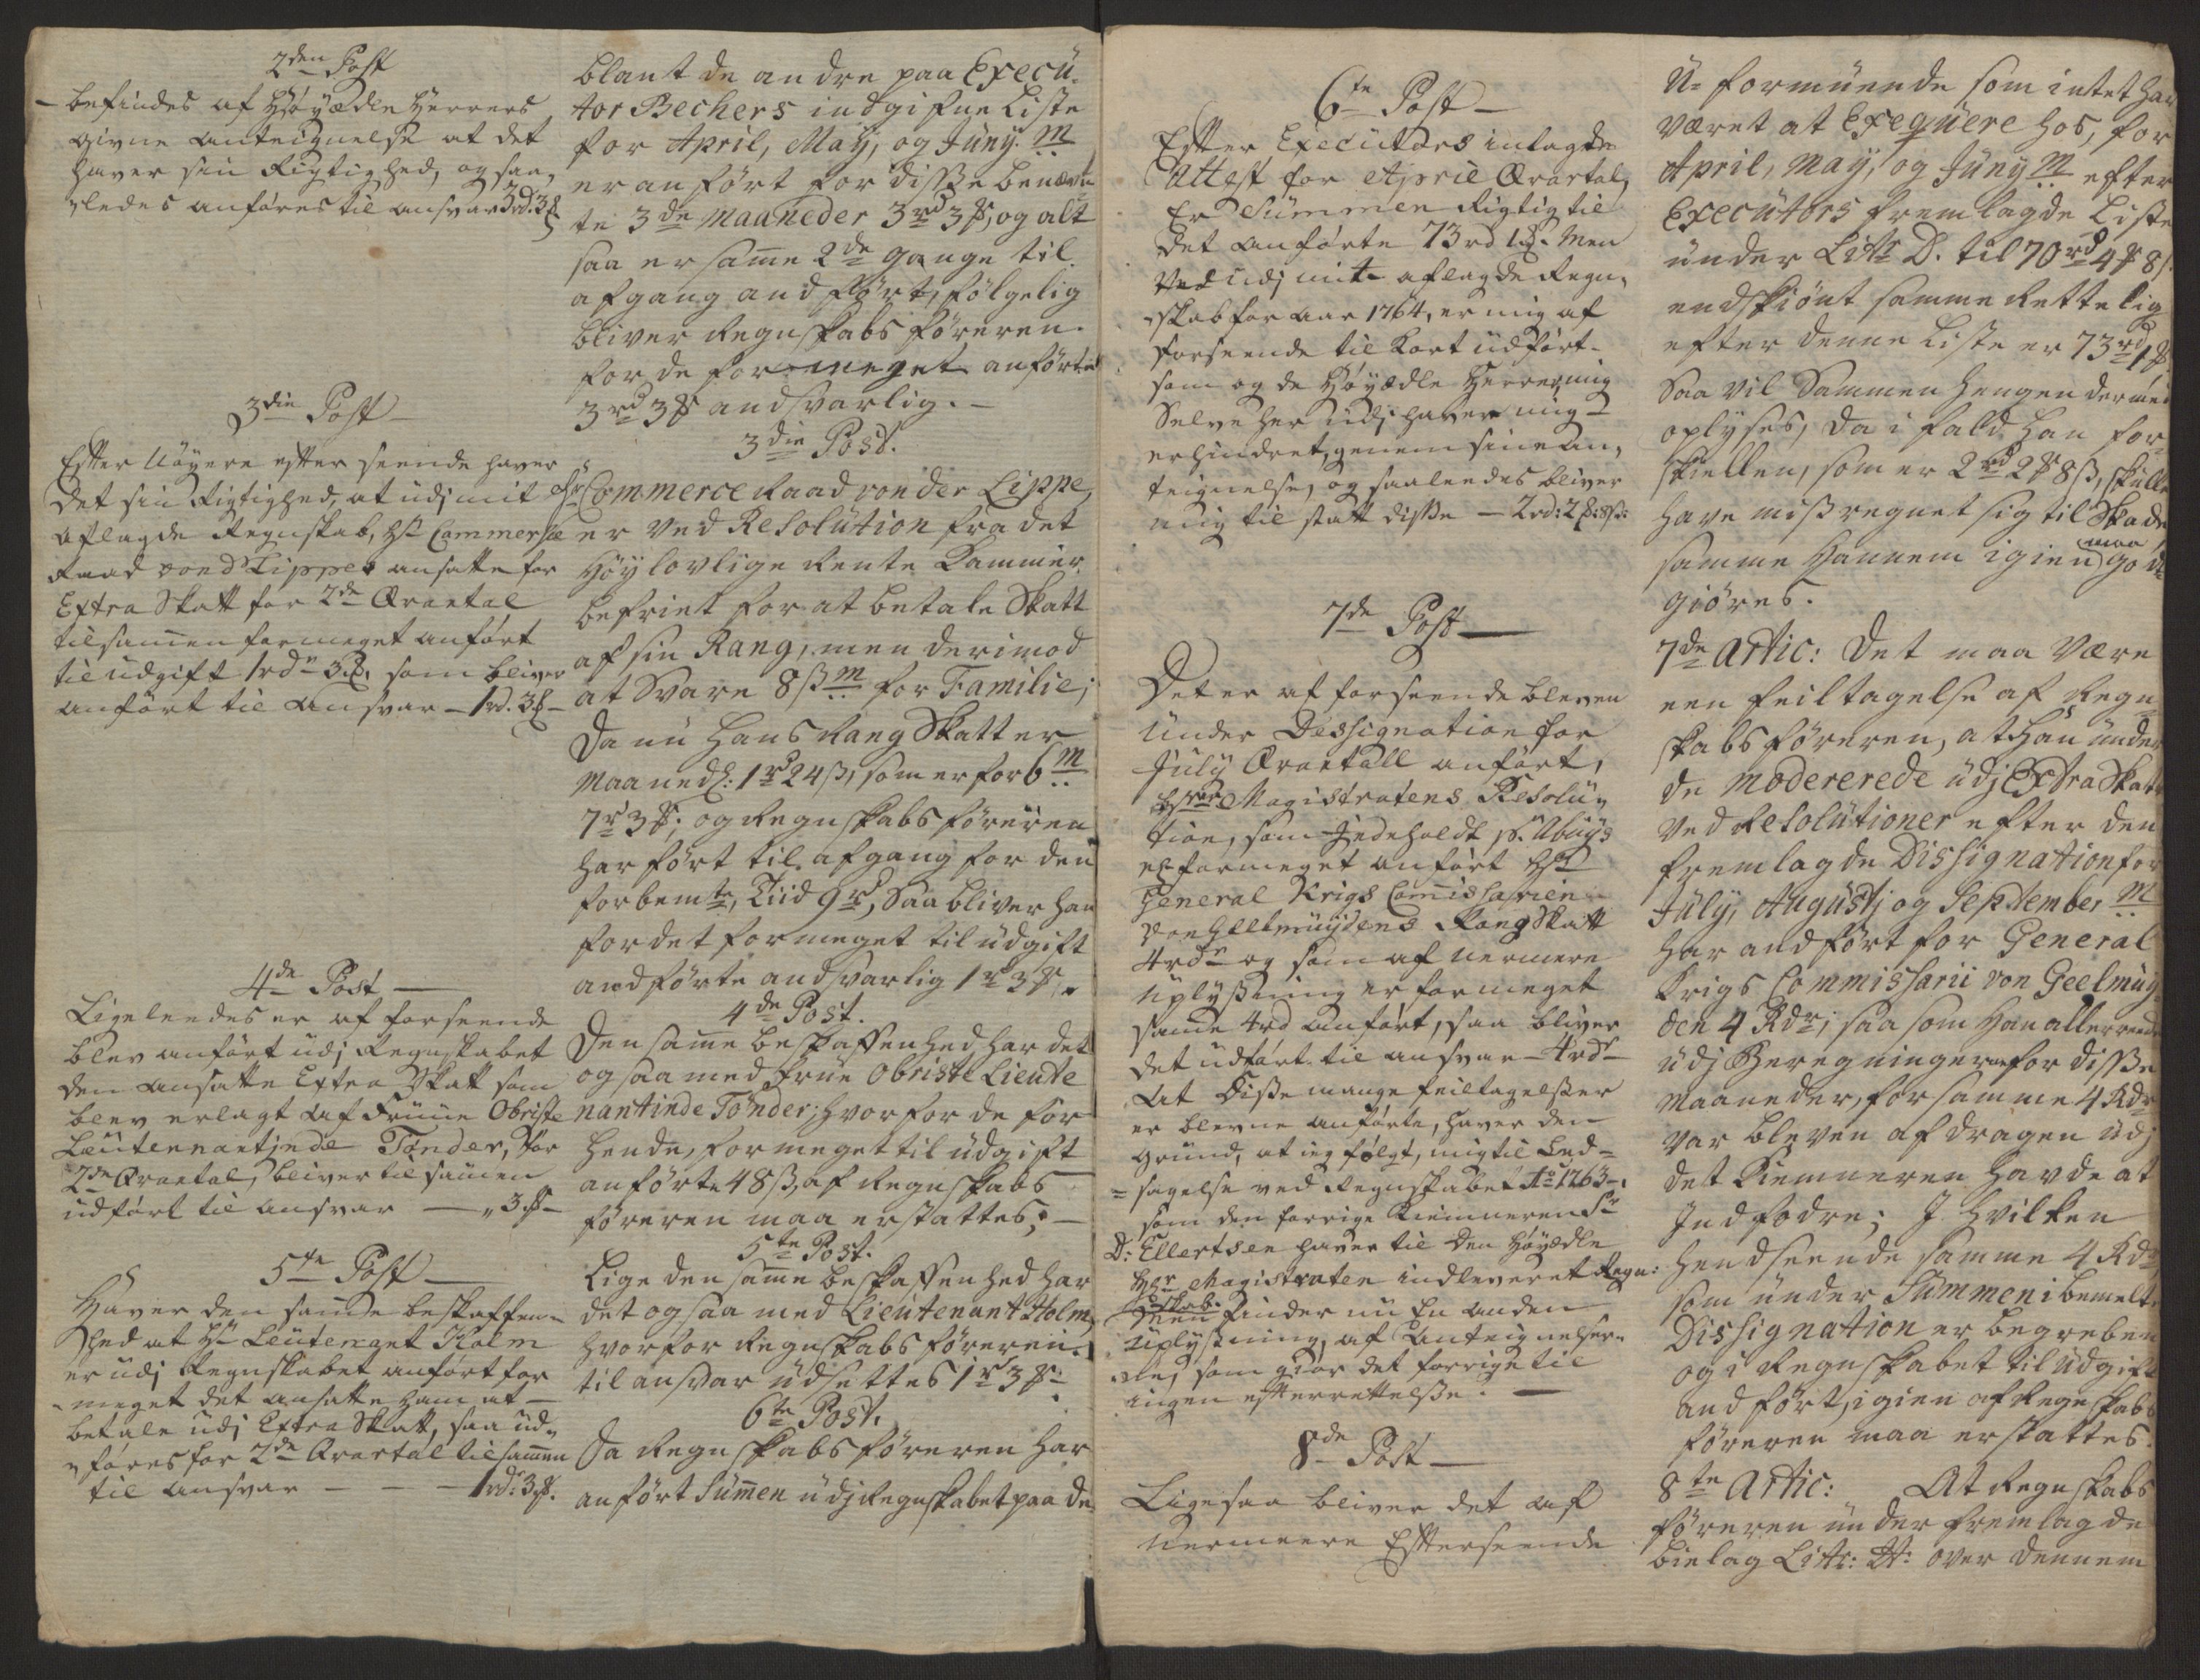 2den Post
- befindes af Høyædle Herrers
givne Anteignelse at det
haver sin Rigtighed, og saa„
„ledes anføres til ansvar 3rd. 3
3die Post -
Efter Nøyere efter seende haver
det sin Rigtighed, at udj mit
aflagde Regnskab, Hr Commersie
Raad von Lippes ansatte for
Extra Skatt for 2de Qvartal
tilsamen formeget anført
til udgift 1rdr 3, som bliver
anført til ansvar - 1rd. 3 -
4de Post -
Ligeleedes er af forseende
blev anført udj Regnskabet
den ansatte Extra Skatt som
blev erlagt af Früe Obriste
Leutenantinde Tønder, for
2de Qvartal, bliver tilsamen
udført til ansvar - „ 3 -
5te Post -
Haver den samme beskaffen-
hed at Hr Leutenant Holm
er udj Regnskabet anført for
meget det ansatte ham at
betale udj Extra Skatt, saa ud„
„føres for 2de Qvartal tilsamen
til ansvar - - - 1rdr: 3.
blant de andre paa Execü-
tor Bechers indgifne Liste
for April, Maÿ, og Jünÿ m
er anført for disse benævn
te 3de Maaneder 3rd 3, og alt
saa er same 2de gange til
afgang andført, følgelig
bliver Regnskabs føreren
for de formeget anførte
3rd 3 andsvarlig. -
3die Post.
Hr Commerce Raad von der Lippe,
er ved Resolution fra det
Høylovlige Rente Kammer
befriet for at betale Skatt
af sin Rang, men derimod
at svare 8 ß m for Familie;
Da nü hans Rang Skatt er
Maanedl: 1r 24 ß, som er for 6 m
7r 3; og Regnskabs føreren
har ført til afgang for den
forbemte Tiid 9r, Saa bliver han
for det formeget til udgift
andførte andsvarlig 1r 3.
4de Post.
Den same beskaffenhed har det
og saa med Früe Obriste Lieute
nantinde Tønder; hvorfor de for
hende, formeget til udgift
anførte 48 ß, af Regnskabs
føreren maa erstattes; -
5te Post.
Lige den same beskaffenhed har
det og saa med Lieutenant Holm,
hvorfor Regnskabs føreren
til ansvar udsettes 1r 3
6te Post.
Da Regnskabs føreren har
anført Sümen udj Regnskabet paa de
6te Post -
Efter Executors indlagde
Attest for April Qvartal,
Er Summen Rigtig til
det anførte 73rd 1. Men
ved udj mit aflagde Regn„
„skab for aar 1764, er mig af
forseende til kort udført-
som og de Høyædle Herrer mig
Selve her udj haver mig
erhindret, genem sine An„
teignelse, og saaleedes bliver
mig til statt disse - 2rd: 2: 8ß:
7de Post -
Det er af forseende bleven
Under Dessignation for
July Qvartall anført,
Magistratens Resolu„
tion, som
formeget anført Hr
General Krigs Comissarien
von Gellmuydens Rang Skatt
4rdr og som af nermere
Uplysning er formeget
samme 4rd anført, saa bliver
det udført til ansvar - 4rdr -
At Disse mange feiltagelsser
er blevne anførte, haver den
Grund, at ieg følgt, mig til Led-
=sagelse ved Regnskabet Ao 1763 -,
som den forrige Kiemneren Sr
D: Ellertsen haver til den Høyædle
Magistraten indleveret Regn:
skab.
Men finder nu En anden
Uplysning af Anteignelser„
„ne, som giør det forrige til
ingen efterrettelse. -
8de Post -
Ligesaa bliver det af
Nermere Efterseende
U-formüende som intet har
været at Exeqüere hos, for
April, May, og Jüny m efter
Execütors fremlagde Liste
ünder Litr D. til 70rd 4 8 ß.
endskiønt samme Rettelig
efter denne Liste er 73rd 1
Saa vil Sammenhengen dermed
oplyses, da i fald han for-
skiellen, som er 2rd 2 8 ß, skulle
have misregnet sig til Skade
samme Hannem igien maa godt
giøres.
7de Artic: Det maa være
een feiltagelse af Regn-
skabs føreren, at han ünder
de modererede üdj Extra Skatt
ved Resolütioner efter den
fremlagde Dissignation for
Jüly, Augüstj og September m
har andført for General
Krigs Commissarii von Geelmüy-
den 4 Rdr; saa som han allerreede
üdj Beregningerne for disse
Maaneder, for samme 4 Rdr
var bleven afdragen üdj
det Kiemneren havde at
Indfodre; J hvilken
henseende samme 4 Rdr
som ünder Summen i bemelte
Dissignation er begreben
og i Regnskabet til üdgift
andført, igien af Regnskabs
føreren maa erstattes.
8te Artic: At Regnskabs
føreren ünder fremlagde
bielag Litr: H: over dennem